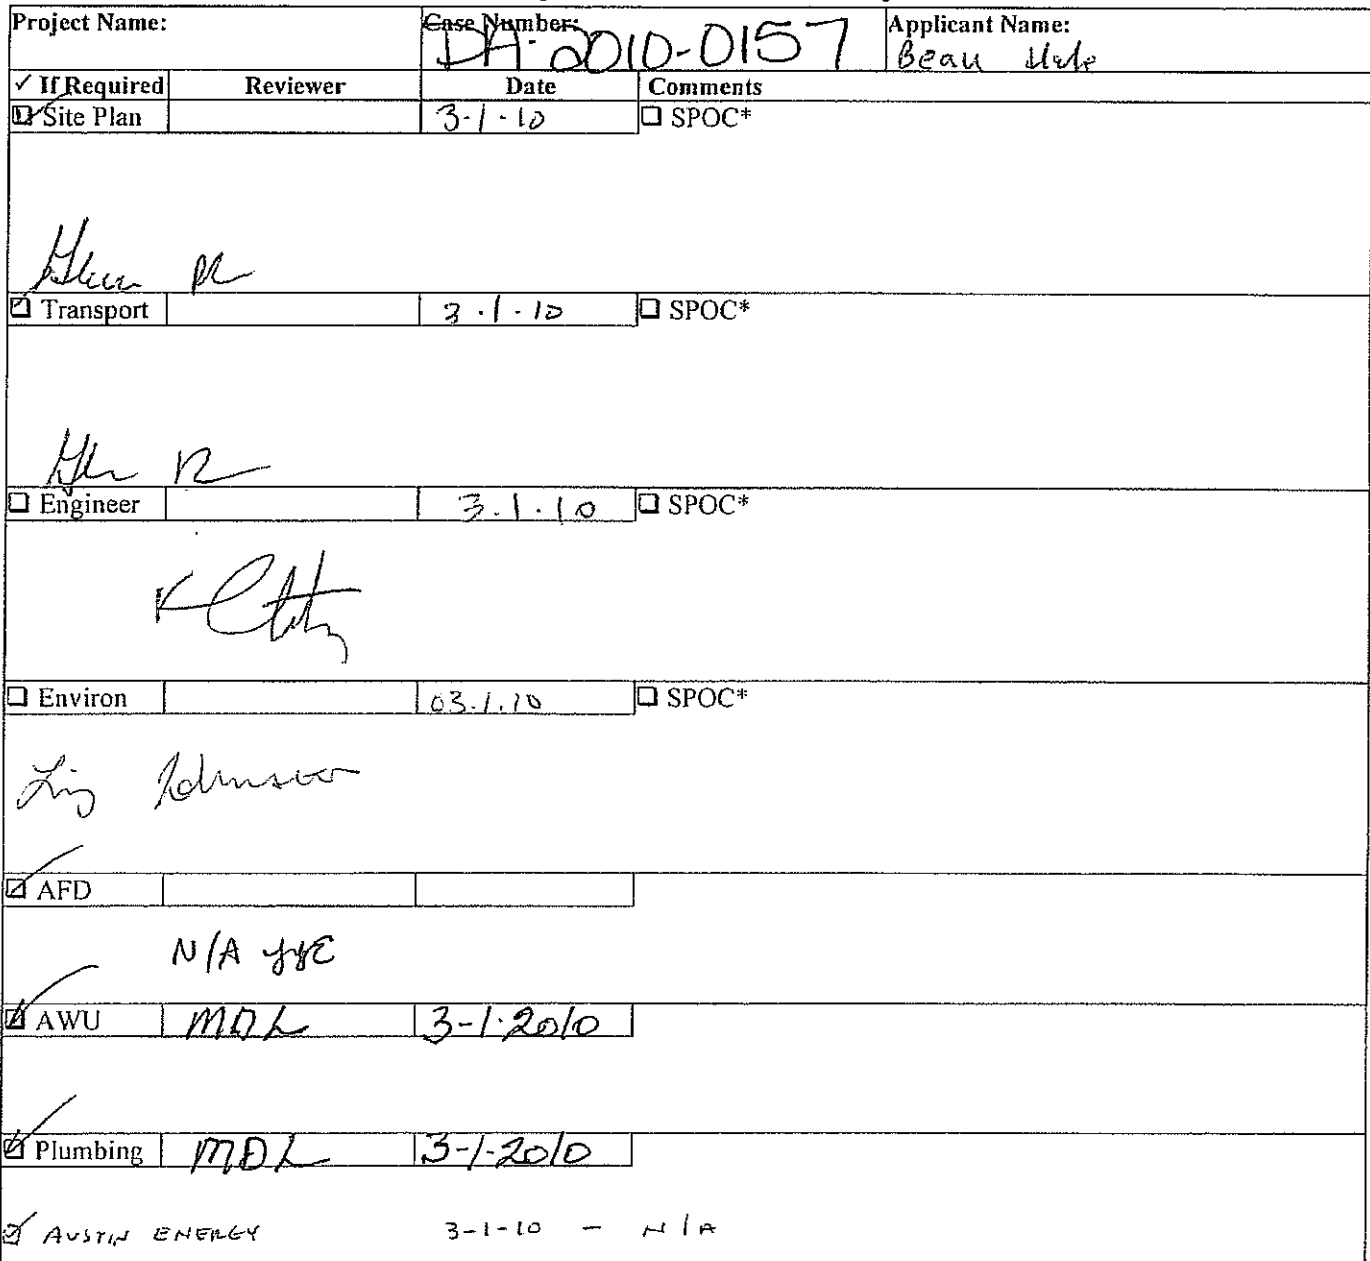 Project Name: Case Number: Applicant Name:
DA-2010-0157 Beau
✓ If Required Reviewer Date Comments
Site Plan 3-1-10 SPOC*
Transport 3.1.10 SPOC*
Engineer 3.1.10 SPOC*
Environ 03.1.10 SPOC*
Liz Johnston
AFD
N/A
AWU MDL 3-1-2010
Plumbing MDL 3-1-2010
AUSTIN ENERGY 3-1-10 - N/A